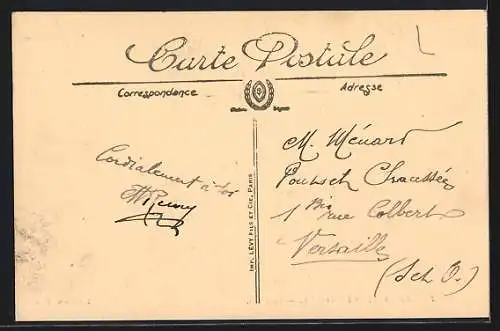 Carte Postale
Correspondance
Adresse
Cordialement à toi
IMP. LÉVY FILS ET CIE, PARIS
M. Ménard
Ponts et Chaussées
1 bis rue Colbert
Versailles
(S et O.)